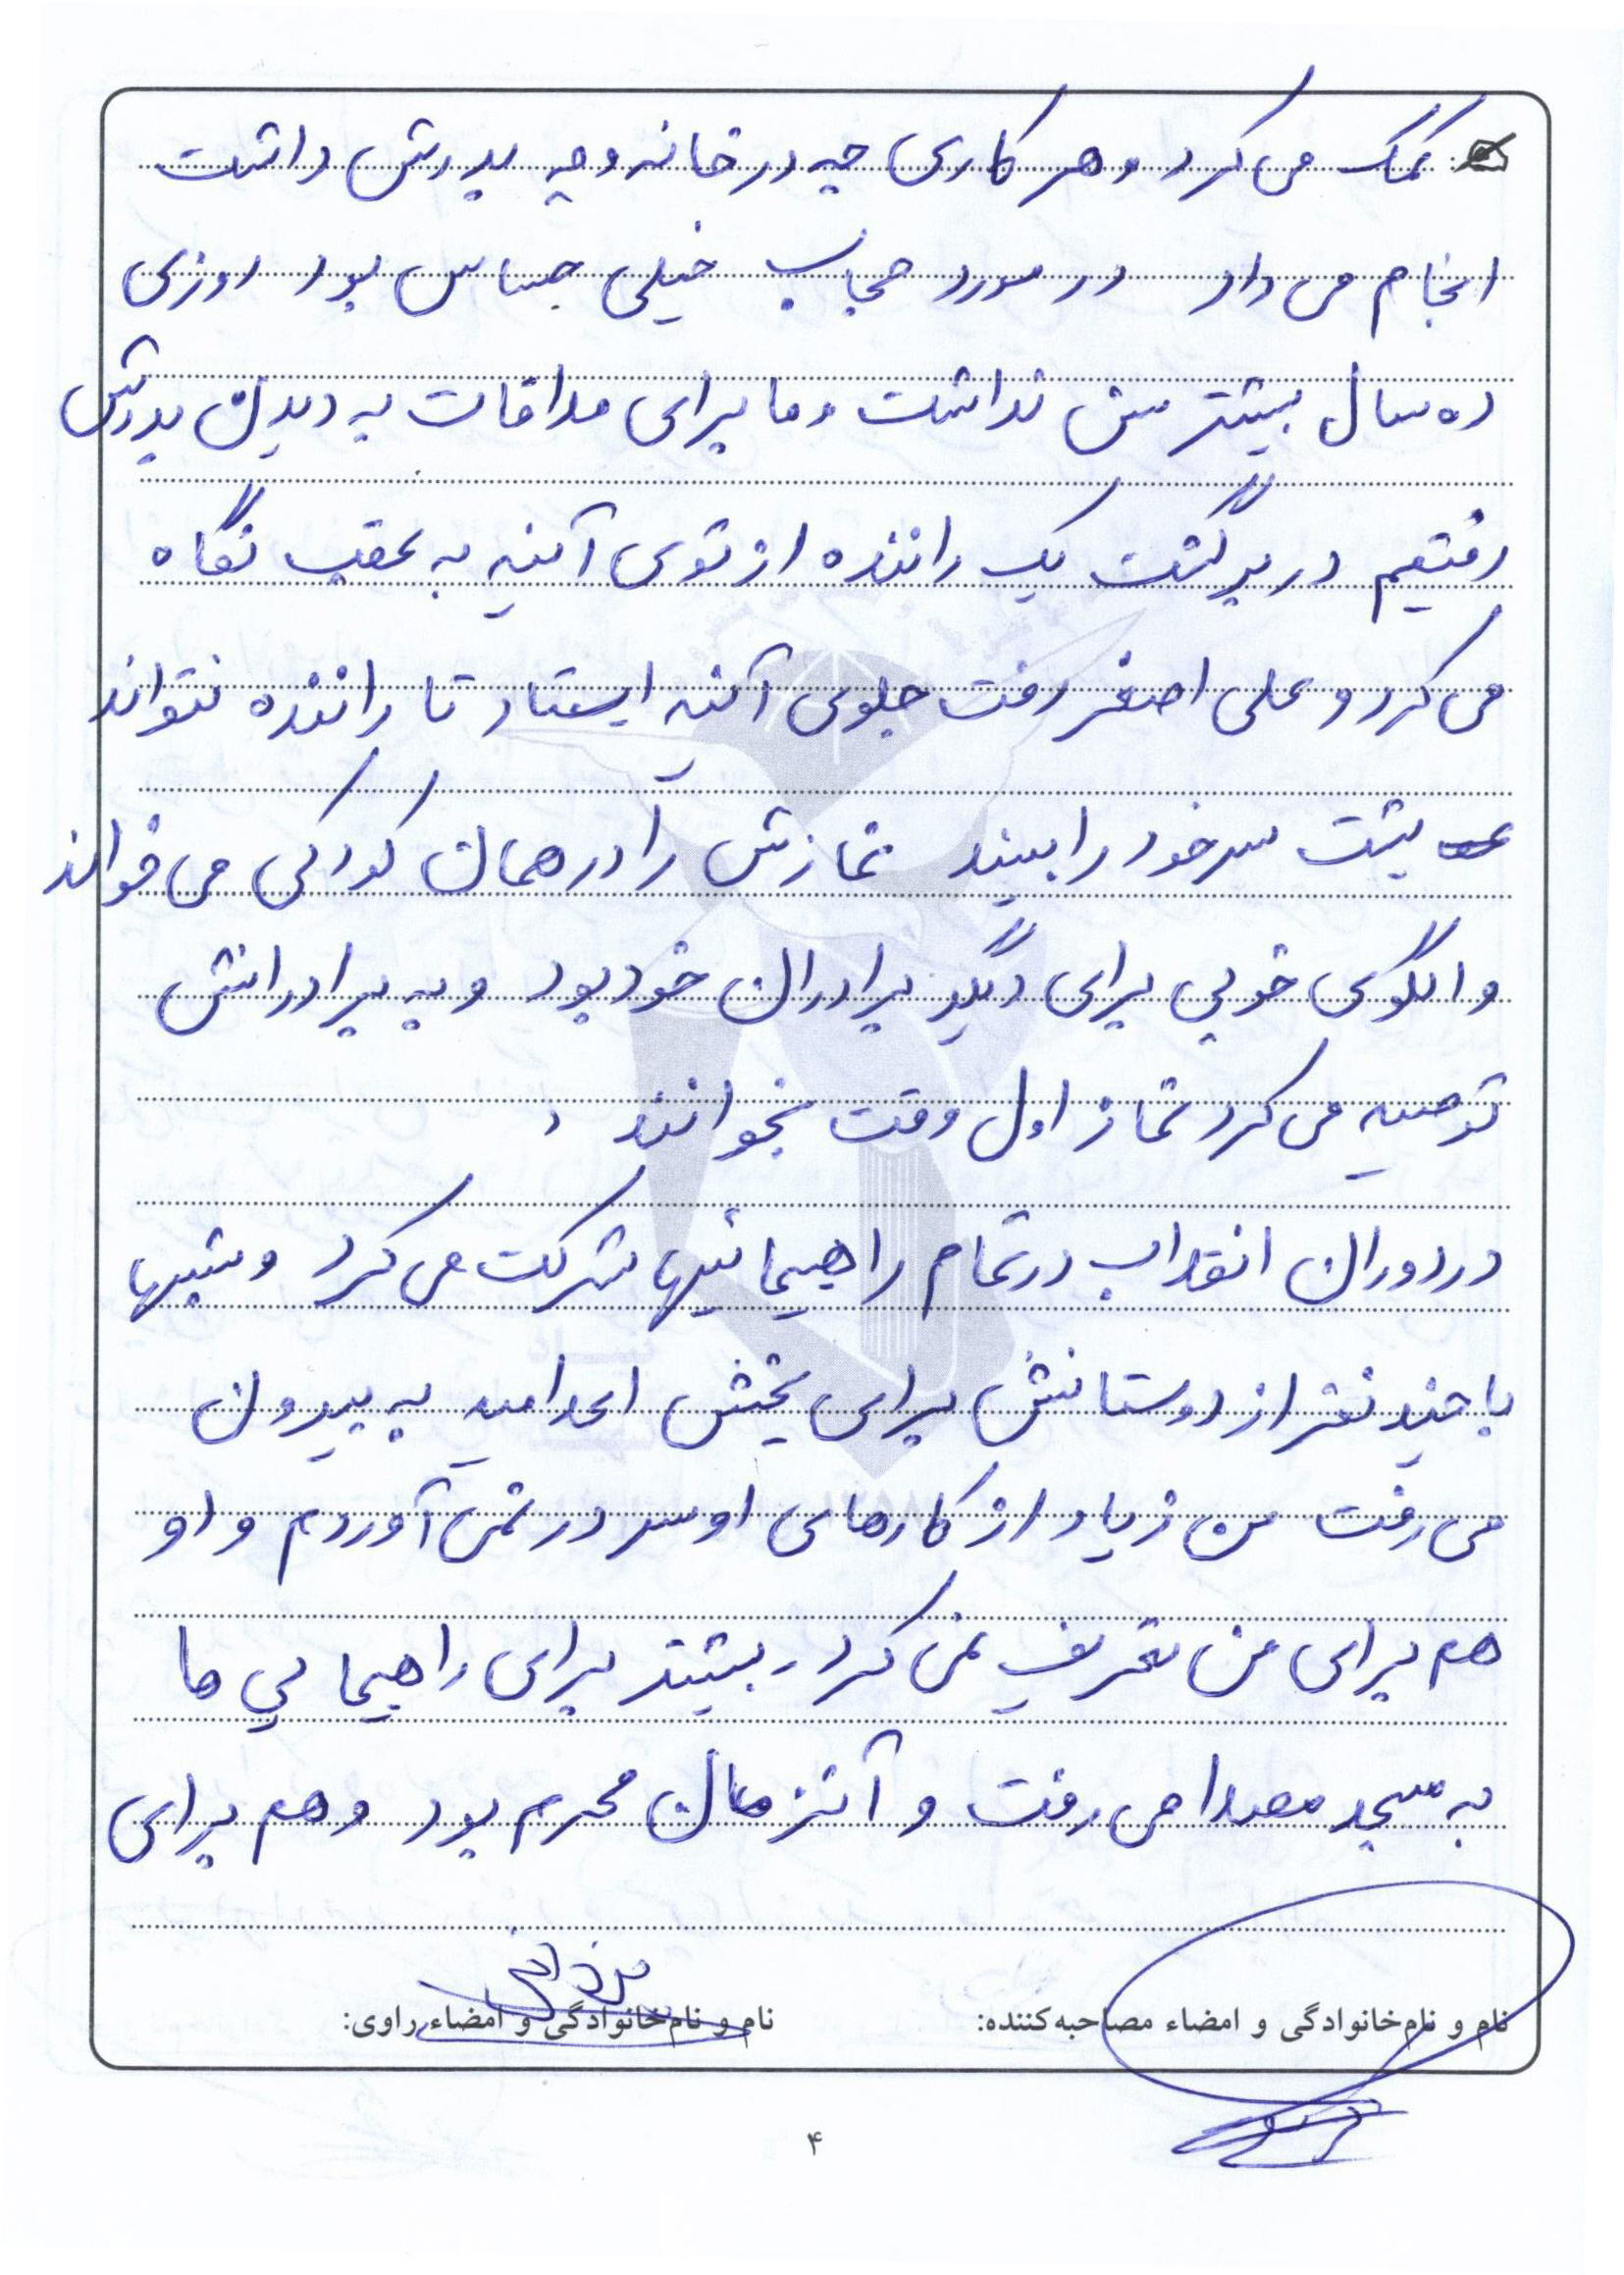 کمک می کرد و هر کاری چه در خانه و چه پدرش داشت
انجام می داد در مورد حجاب خیلی حساس بود روزی
ده سال بیشتر سن نداشت و ما برای ملاقات به دیدن پدرش
رفتیم در برگشت یک راننده از توی آئینه به عقب نگاه
می کرد و علی اصغر رفت جلوی آئینه ایستاد تا راننده نتواند
پشت سر خود را ببیند نمازش را در همان کودکی می خواند
و الگوی خوبی برای دیگر برادران خود بود و به برادرانش
توصیه می کرد نماز اول وقت بخوانند .
در دوران انقلاب در تمام راهپیمائیها شرکت می کرد و شبها
با چند نفر از دوستانش برای پخش اعلامیه به بیرون
می رفت من زیاد از کارهای او سر در نمی آوردم و او
هم برای من تعریف نمی کرد . بیشتر برای راهپیمایی ها
به مسجد مصلا می رفت و آنزمان محرم بود و هم برای
نام و نام‌خانوادگی و امضاء مصاحبه‌کننده:
نام و نام‌خانوادگی و امضاء راوی:
۴